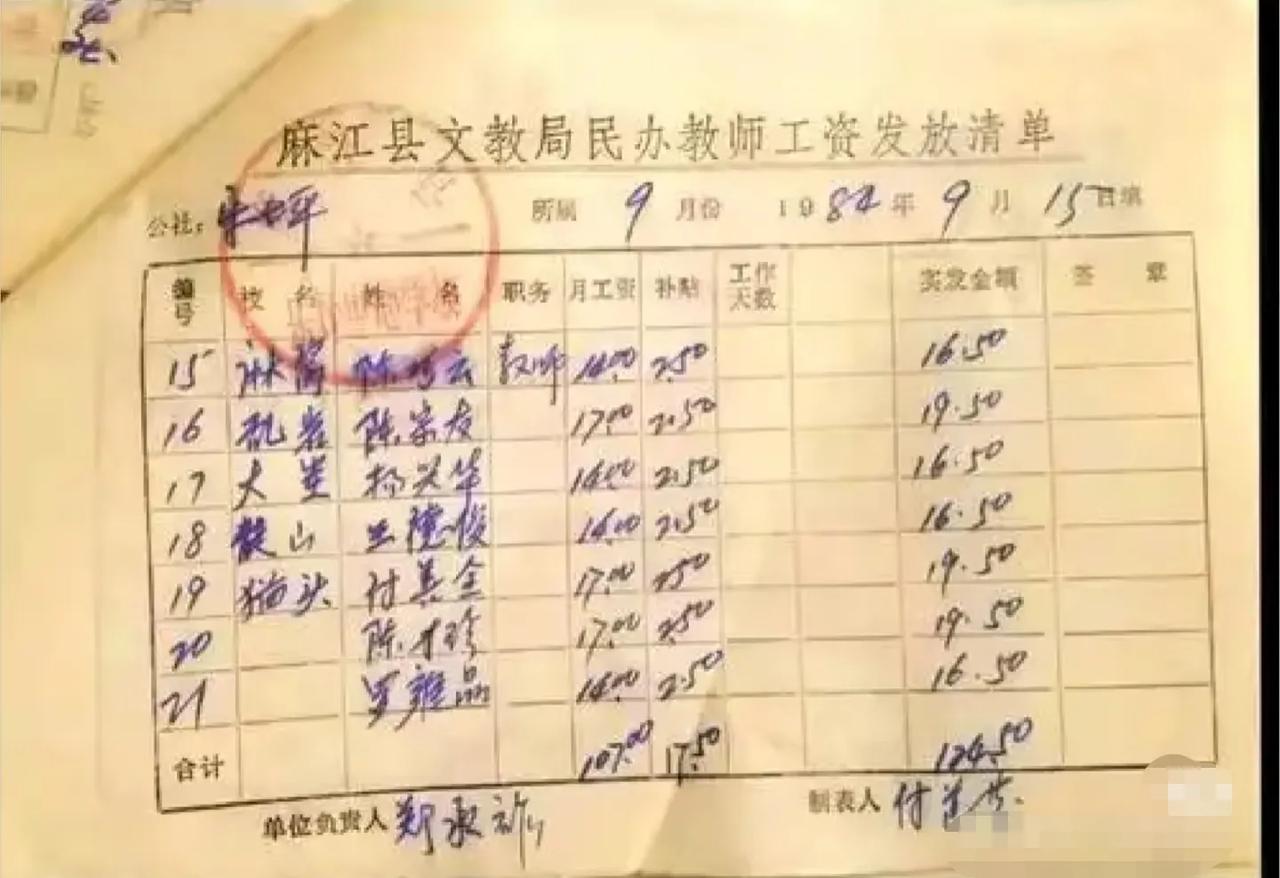 麻江县文教局民办教师工资发放清单
公社： 所属 9 月份 1984 年 9 月 15 日填
编号 校名 姓名 职务 月工资 补贴 工作天数 实发金额 签章
15 陈 云 教师 14.00 2.50 16.50
16 乱岩 陈宗友 17.00 2.50 19.50
17 大 杨兴华 14.00 2.50 16.50
18 山 王德俊 14.00 2.50 16.50
19 猫头 付其全 17.00 2.50 19.50
20 陈才珍 17.00 2.50 19.50
21 罗雅品 14.00 2.50 16.50
合计 107.00 17.50 124.50
单位负责人 郑承祚 制表人 付